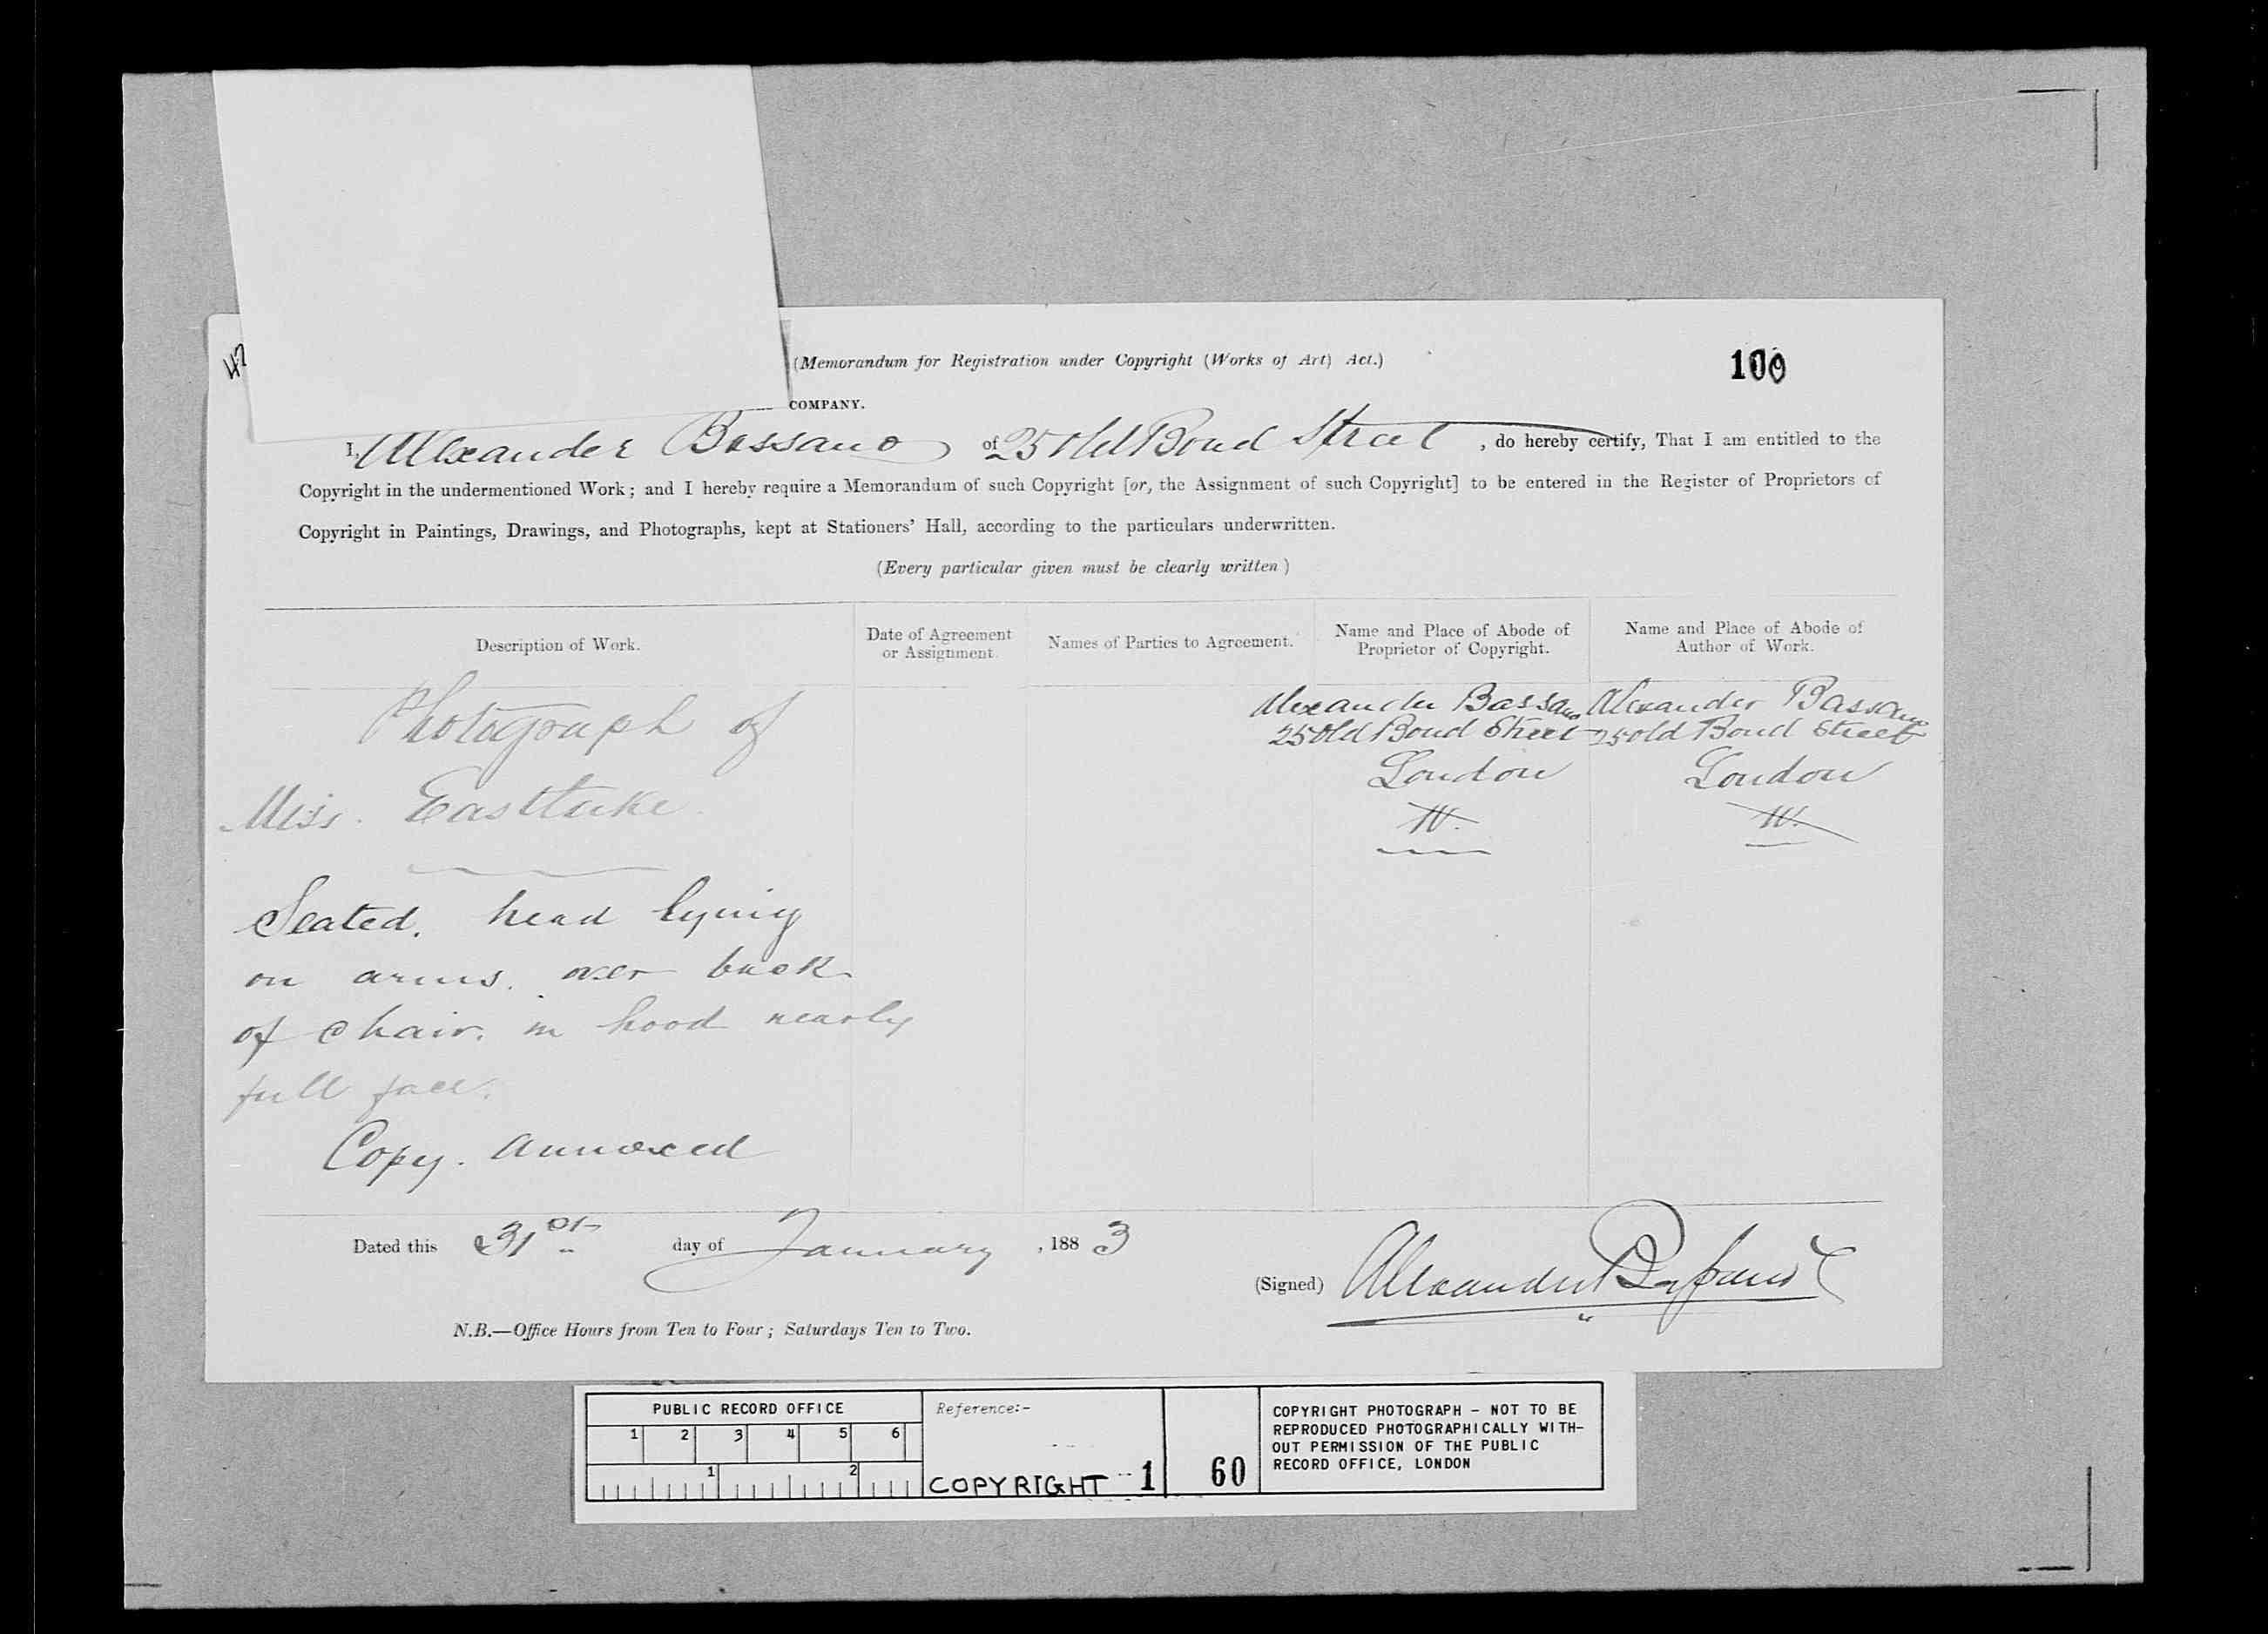 (Memorandum for Registration under Copyright (Works of Art) Act.)
100
42
COMPANY.
I, Alexander Bassano of 25 Old Bond Street, do hereby certify, That I am entitled to the
Copyright in the undermentioned Work; and I hereby require a Memorandum of such Copyright [or, the Assignment of such Copyright] to be entered in the Register of Proprietors of
Copyright in Paintings, Drawings, and Photographs, kept at Stationers' Hall, according to the particulars underwritten.
(Every particular given must be clearly written)
Description of Work.
Date of Agreement
or Assignment
Names of Parties to Agreement.
Name and Place of Abode of
Proprietor of Copyright.
Name and Place of Abode of
Author of Work.
Photograph of
Miss. Eastlake.
Seated. head lying
on arms. over back
of chair. in hood nearly
full face.
Copy. annexed
Alexander Bassano
25 Old Bond Street
London
W.
Alexander Bassano
25 Old Bond Street
London
W.
Dated this 31st day of January, 1883
(Signed) Alexander Bassano
N.B.—Office Hours from Ten to Four; Saturdays Ten to Two.
PUBLIC RECORD OFFICE
1 2 3 4 5 6
1 2
Reference:-
COPYRIGHT 1
60
COPYRIGHT PHOTOGRAPH - NOT TO BE
REPRODUCED PHOTOGRAPHICALLY WITH-
OUT PERMISSION OF THE PUBLIC
RECORD OFFICE, LONDON